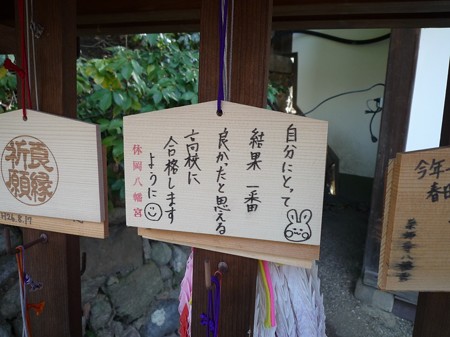 自分にとって
結果 一番
良かったと思える
高校に
合格します
ように
休岡八幡宮
良縁
祈願
今年
春